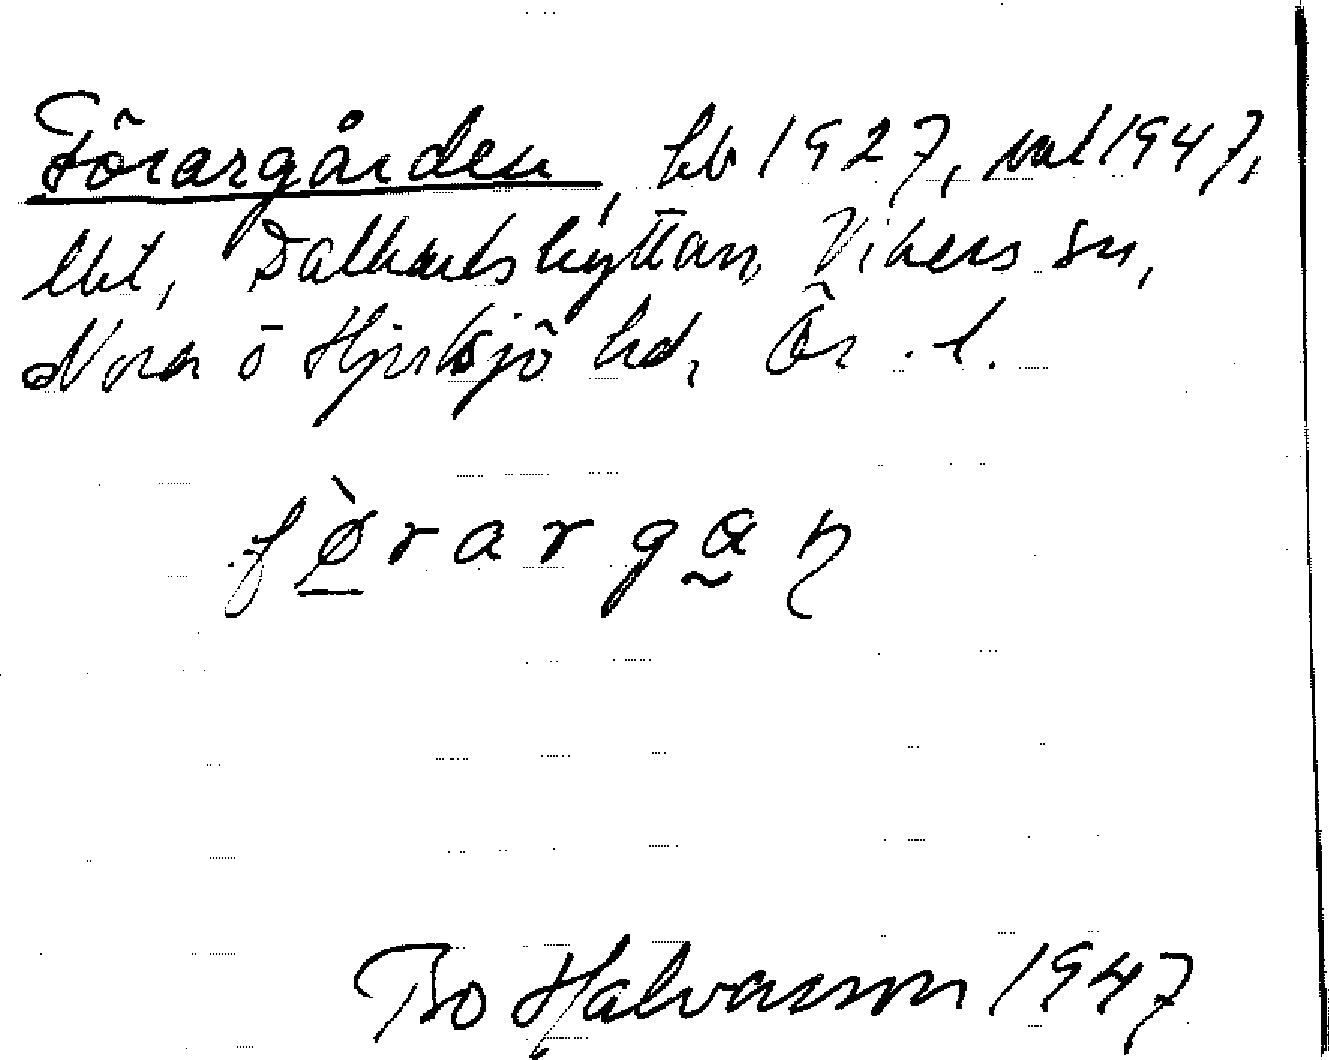 Förargården, hb 1927, mtl 1947,
lht, Dalkarlshyttan, Vikers sn,
Nora o Hjulsjö hd, Ör. l.
fø̀rargaɳ
Bo Halvarsson 1947